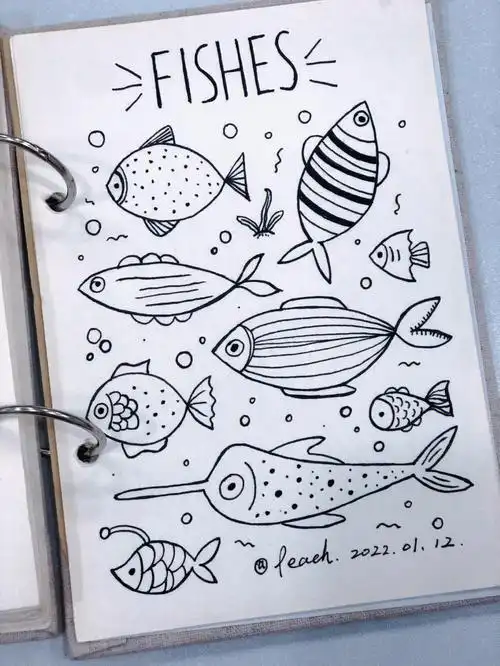 FISHES
@leach. 2022.01.12.